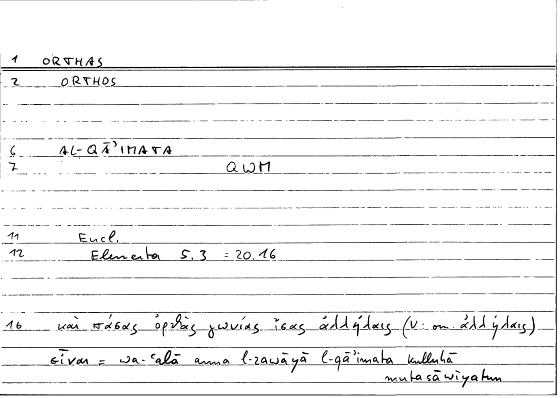 1 ORTHAS
2 ORTHOS
6 AL-QĀʾIMATA
7 QWM
11 Eucl.
12 Elementa 5.3 = 20.16
16 καὶ πάσας ὀρθὰς γωνίας ἴσας ἀλλήλαις (V: om. ἀλλήλαις)
εἶναι = wa-ʿalā anna l-zawāyā l-qāʾimata kulluhā
mutasāwiyatun